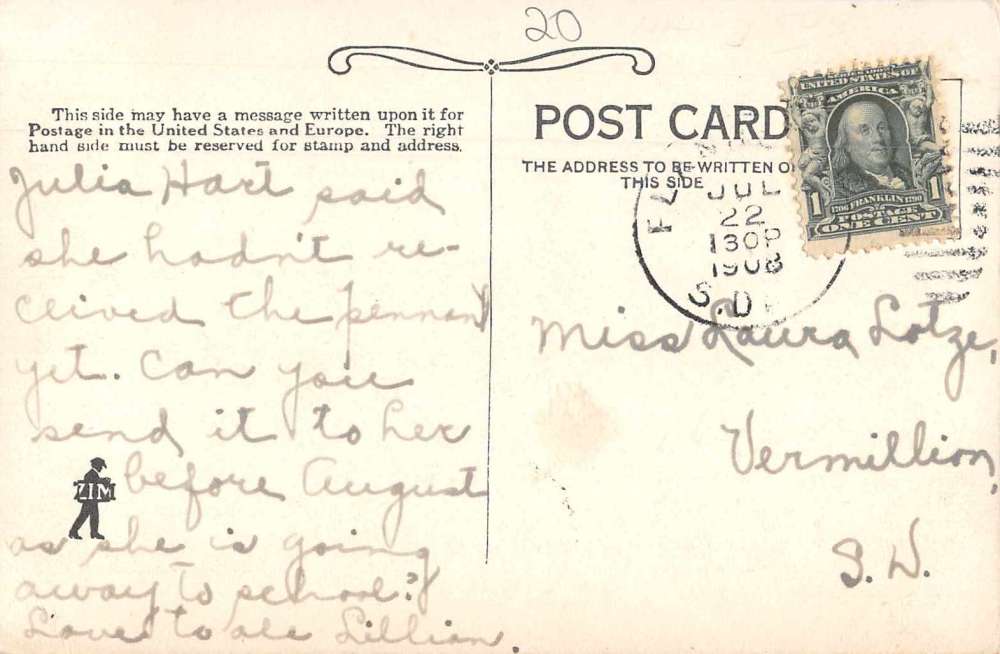 20
This side may have a message written upon it for
Postage in the United States and Europe. The right
hand side must be reserved for stamp and address.
Julia Hart said
she hadn't re-
ceived the pennant
yet. Can you
send it to her
before August
as she is going
away to school?
Love to all Lillian.
ZIM
POST CARD
THE ADDRESS TO BE WRITTEN ON
THIS SIDE
UNITED STATES OF
AMERICA
1706 FRANKLIN 1790
1 POSTAGE 1
ONE CENT
JUL
22
130P
1908
S.D.
Miss Laura Lotze,
Vermillion,
S. D.